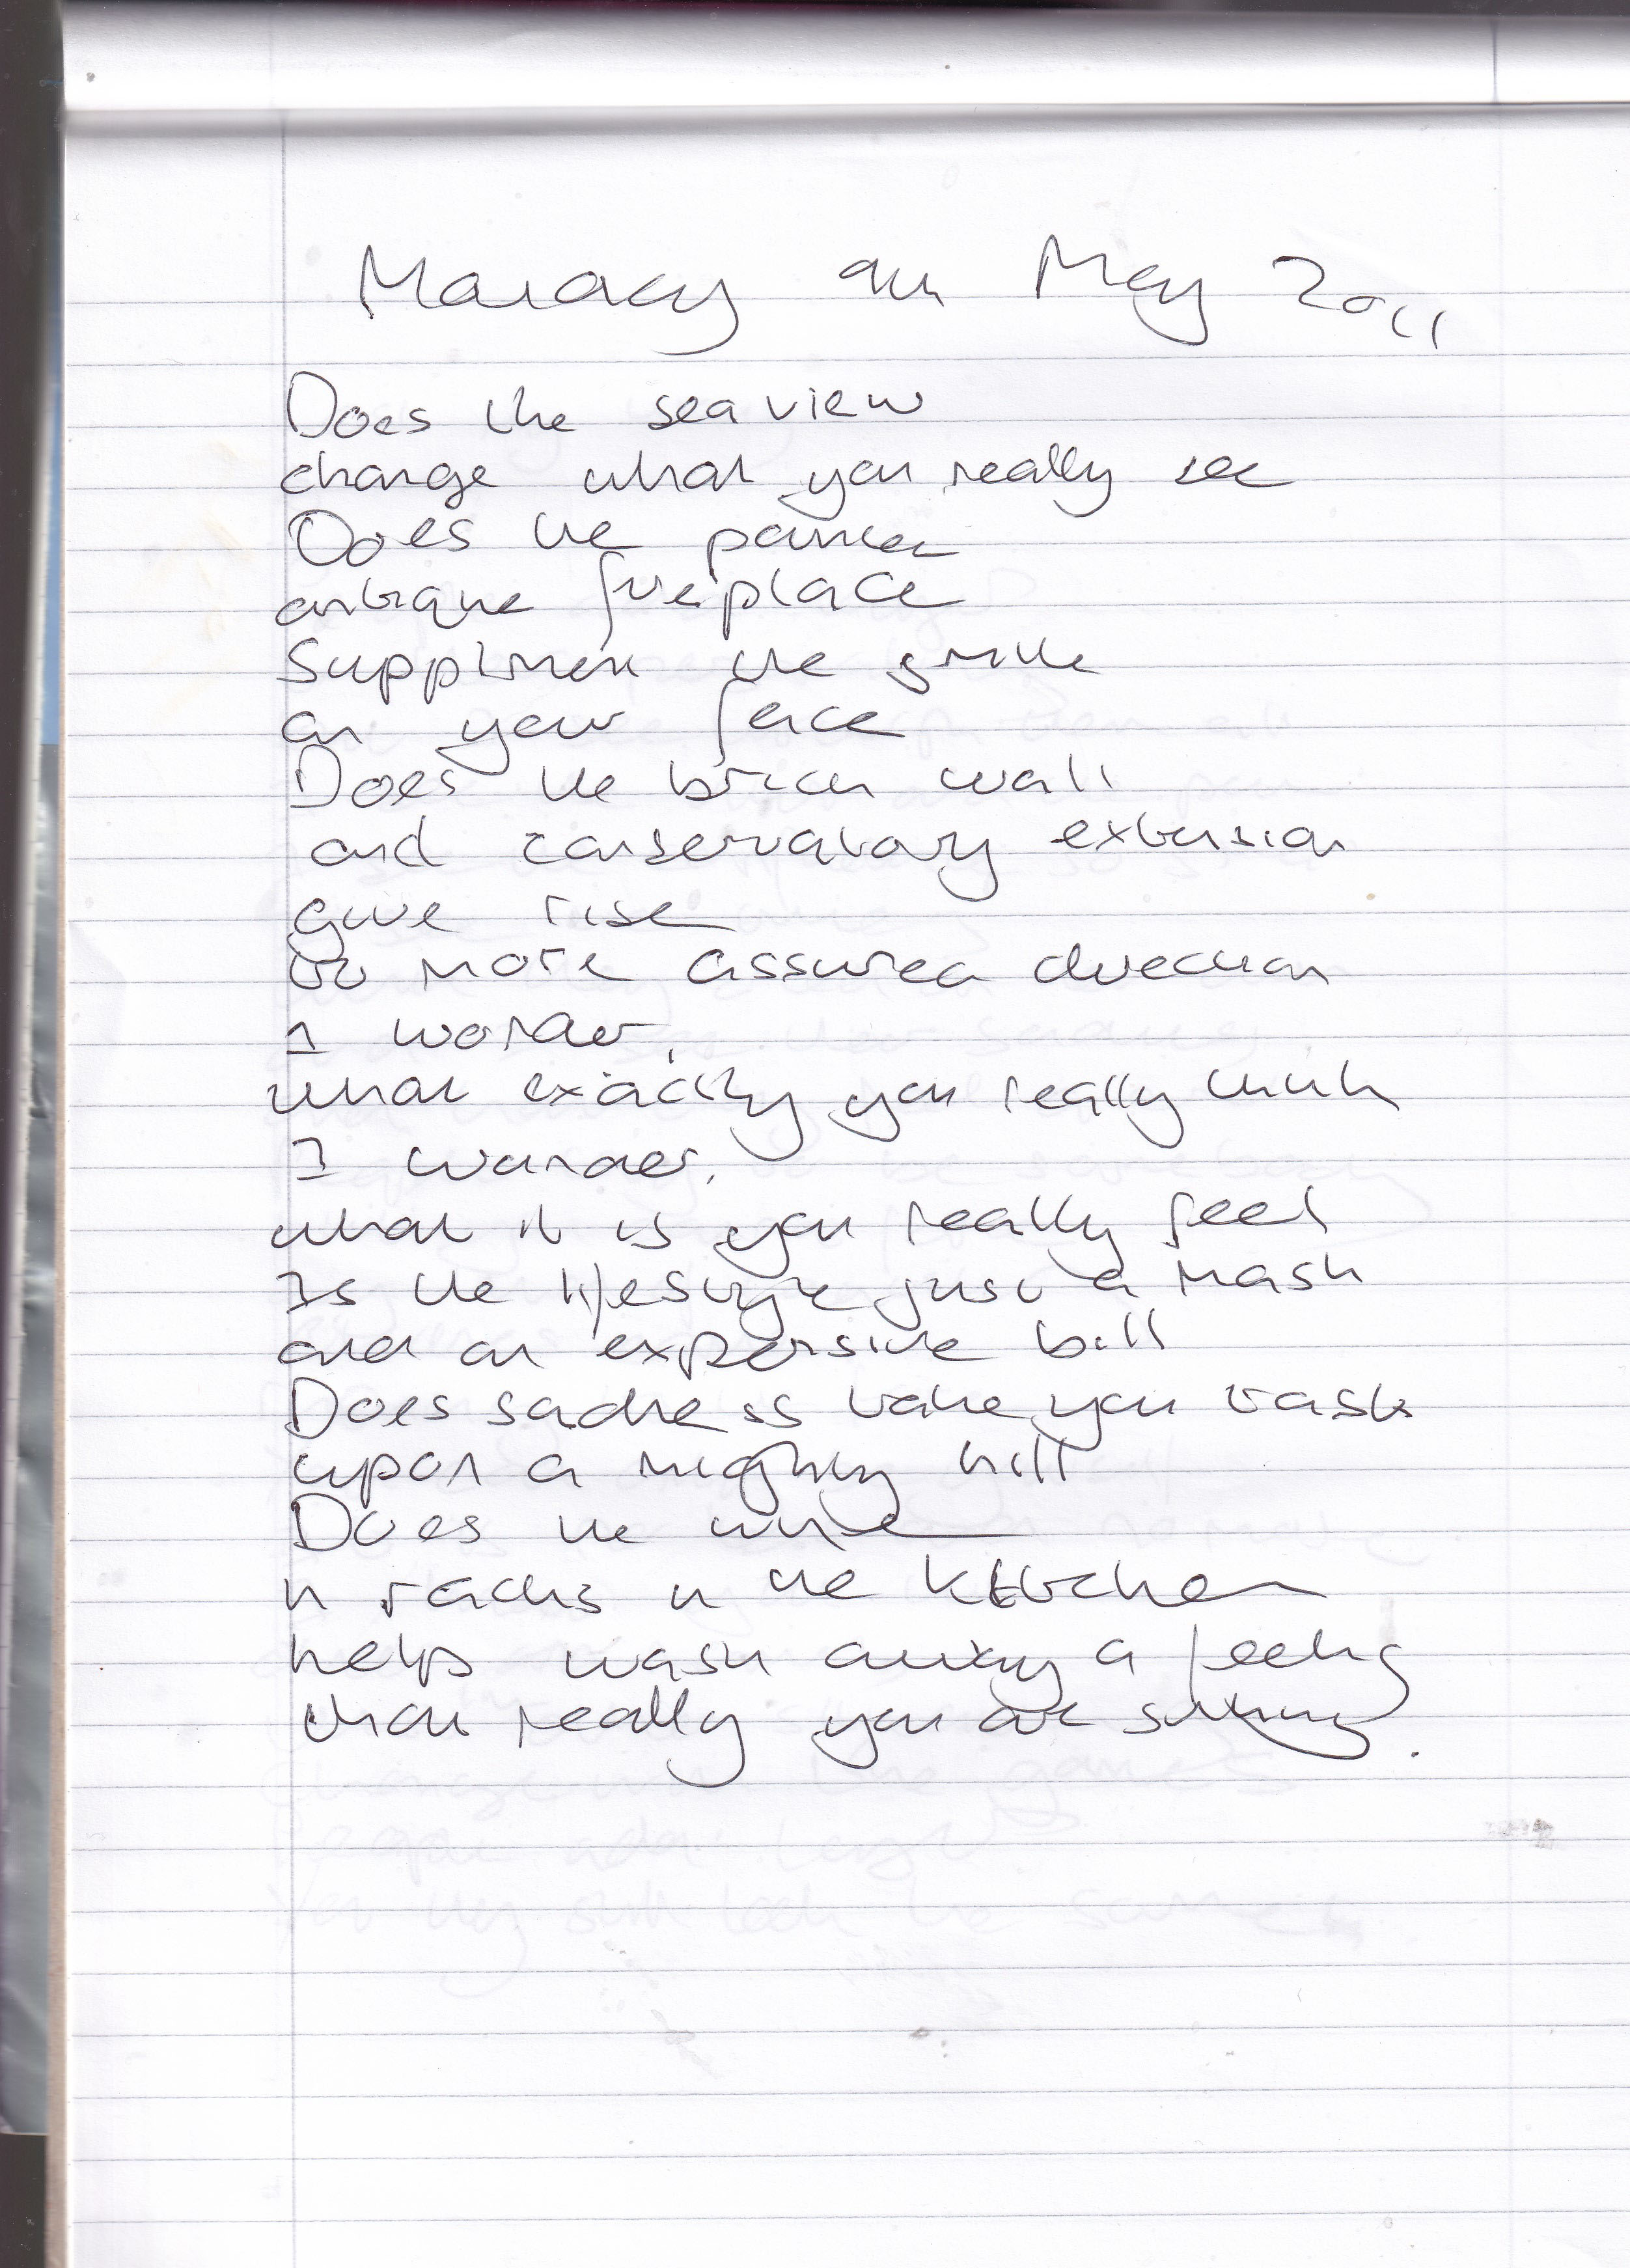 Monday 9th May 2011
Does the seaview
change what you really see
Does the painted
antique fireplace
Suppliment the smile
on your face
Does the brick wall
and conservatory extension
give rise
to more assured direction
I wonder,
what exactly you really think
I wonder,
what it is you really feel
Is the lifestyle just a mask
and an expensive bill
Does sadness take you task
upon a mighty hill
Does the wine
in racks in the kitchen
helps wash away a feeling
that really you are